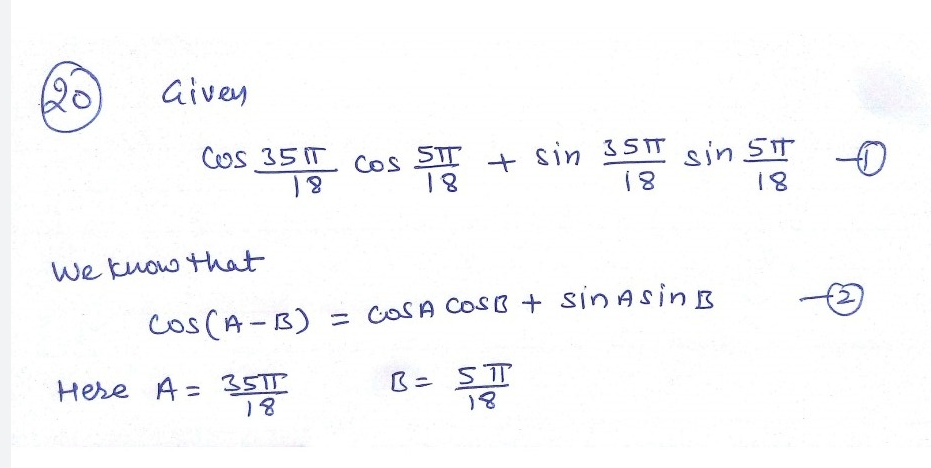 20 Given
cos 35π/18 cos 5π/18 + sin 35π/18 sin 5π/18 —①
We know that
cos(A-B) = cosA cosB + sinA sinB —②
Here A = 35π/18 B = 5π/18